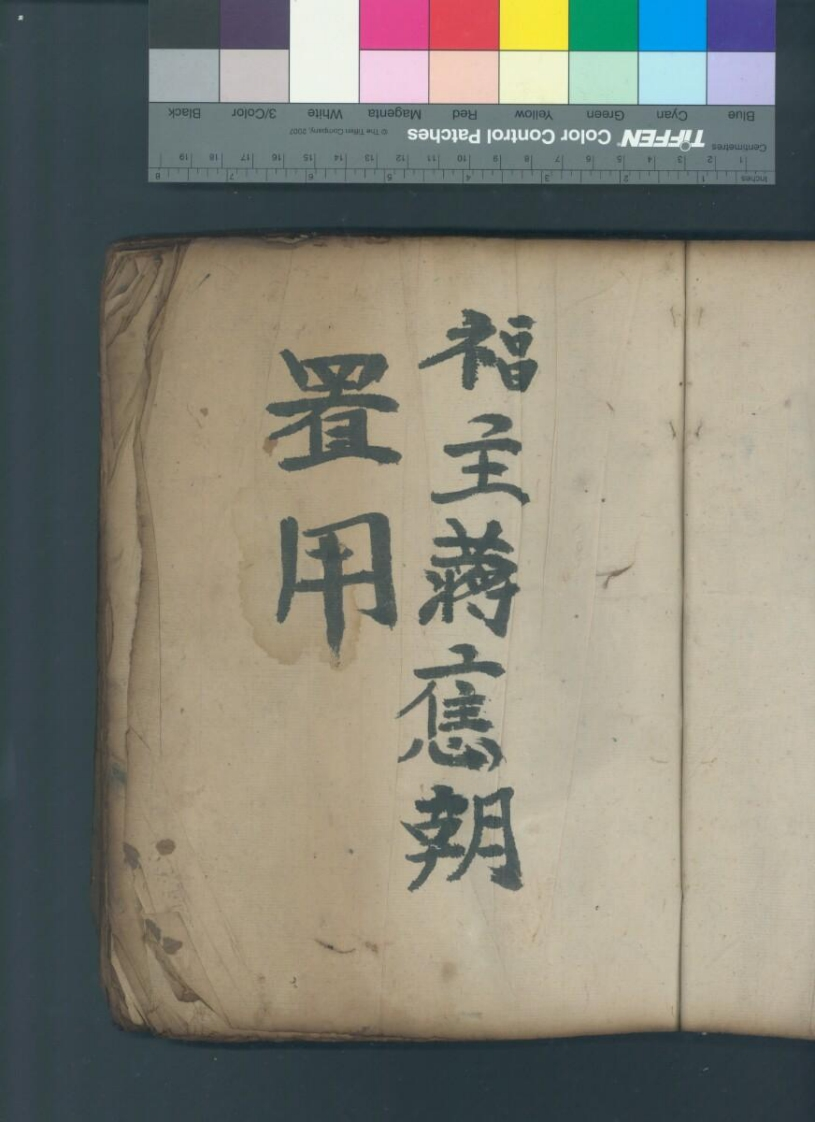 福主蔣應朝
置用
Blue Cyan Green Yellow Red Magenta White 3/Color Black
TIFFEN Color Control Patches © The Tiffen Company, 2007
Centimetres 1 2 3 4 5 6 7 8 9 10 11 12 13 14 15 16 17 18 19
Inches 1 2 3 4 5 6 7 8